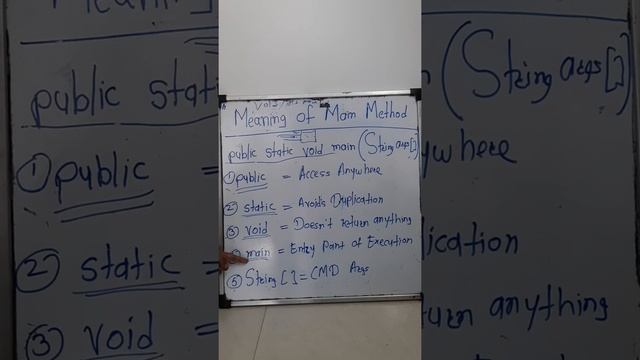 Meaning of Main Method
public static void main (String args[])
① public = Access Anywhere
② static = Avoids Duplication
③ void = Doesn't return anything
main = Entry Part of Execution
⑤ String [] = CMD Args